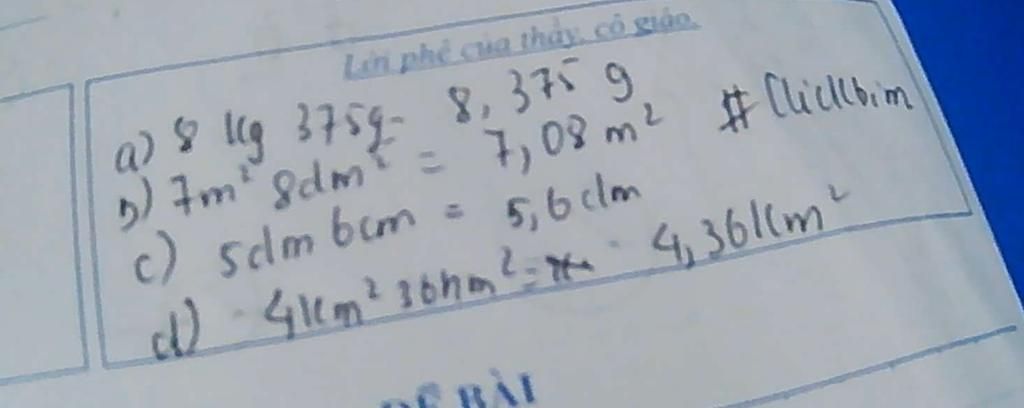 Lời phê của thầy, cô giáo
a) 8 kg 375g = 8, 375 g
b) 7m² 8dm² = 7,08 m² # Clickbim
c) 5dm 6cm = 5,6dm
d) 4km² 36hm² = 4,36km²
ĐỀ BÀI